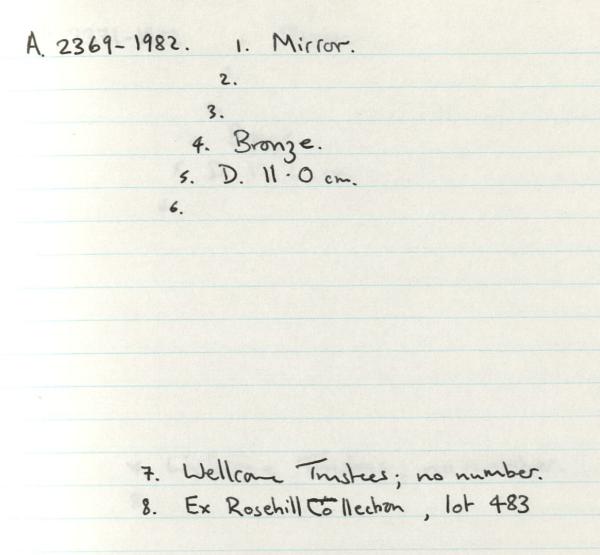 A. 2369-1982. 1. Mirror.
2.
3.
4. Bronze.
5. D. 11.0 cm.
6.
7. Wellcome Trustees; no number.
8. Ex Rosehill Collection, lot 483